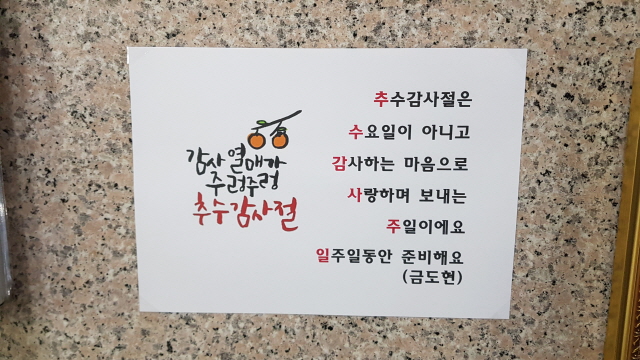 감사 열매가
주렁주렁
추수감사절
추수감사절은
수요일이 아니고
감사하는 마음으로
사랑하며 보내는
주일이에요
일주일동안 준비해요
(금도현)